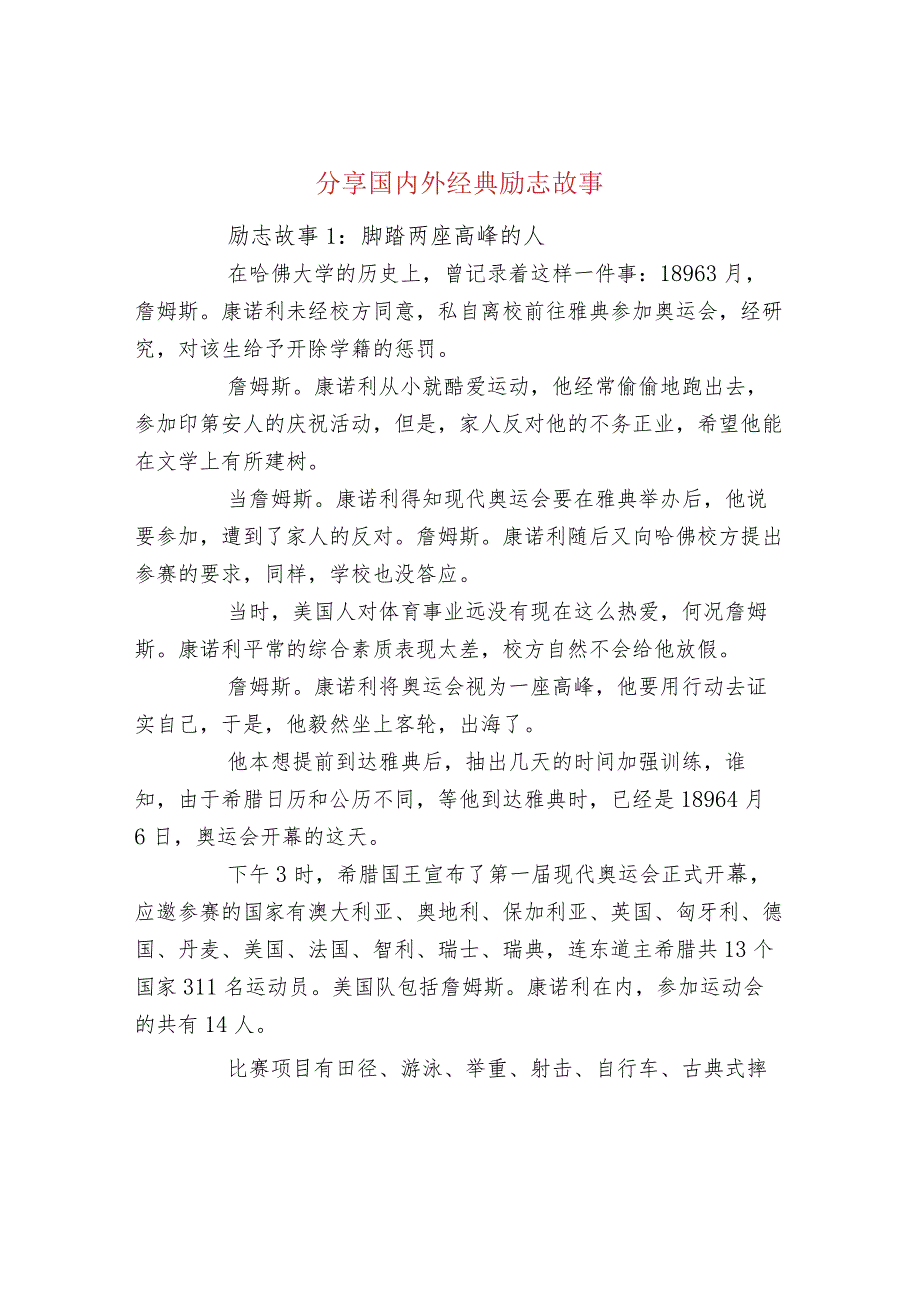 分享国内外经典励志故事
励志故事1：脚踏两座高峰的人
在哈佛大学的历史上，曾记录着这样一件事：18963月，
詹姆斯。康诺利未经校方同意，私自离校前往雅典参加奥运会，经研
究，对该生给予开除学籍的惩罚。
詹姆斯。康诺利从小就酷爱运动，他经常偷偷地跑出去，
参加印第安人的庆祝活动，但是，家人反对他的不务正业，希望他能
在文学上有所建树。
当詹姆斯。康诺利得知现代奥运会要在雅典举办后，他说
要参加，遭到了家人的反对。詹姆斯。康诺利随后又向哈佛校方提出
参赛的要求，同样，学校也没答应。
当时，美国人对体育事业远没有现在这么热爱，何况詹姆
斯。康诺利平常的综合素质表现太差，校方自然不会给他放假。
詹姆斯。康诺利将奥运会视为一座高峰，他要用行动去证
实自己，于是，他毅然坐上客轮，出海了。
他本想提前到达雅典后，抽出几天的时间加强训练，谁
知，由于希腊日历和公历不同，等他到达雅典时，已经是18964月
6日，奥运会开幕的这天。
下午3时，希腊国王宣布了第一届现代奥运会正式开幕，
应邀参赛的国家有澳大利亚、奥地利、保加利亚、英国、匈牙利、德
国、丹麦、美国、法国、智利、瑞士、瑞典，连东道主希腊共13个
国家311名运动员。美国队包括詹姆斯。康诺利在内，参加运动会
的共有14人。
比赛项目有田径、游泳、举重、射击、自行车、古典式摔